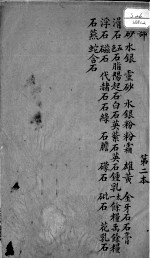 第二本
砂 水銀 靈砂 水銀粉 粉霜 雄黃 金牙石 石膏
滑石 五石脂 陽起石 白石英 紫石英 石鍾乳 太一餘糧 禹餘糧
浮石 磁石 代赭石 石綠 石膽 礞石 砒石 花乳石
石燕 蛇含石